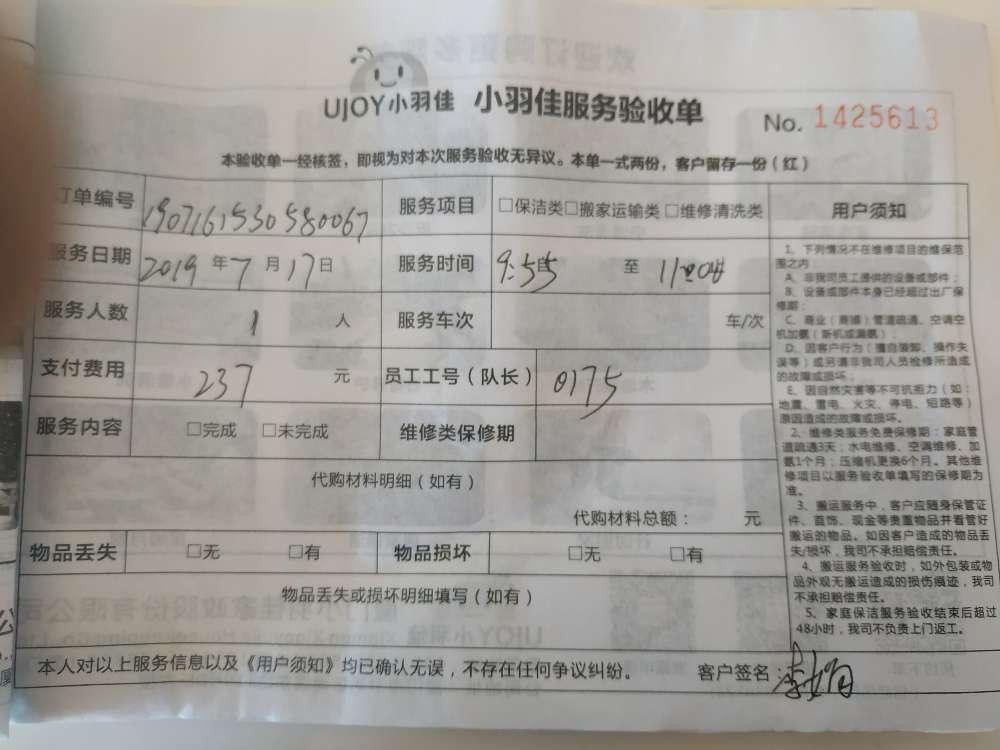 UJOY小羽佳 小羽佳服务验收单 No. 1425613
本验收单一经核签，即视为对本次服务验收无异议。本单一式两份，客户留存一份（红）
订单编号 1907161530580067 服务项目 □保洁类□搬家运输类□维修清洗类
服务日期 2019 年 7 月 17 日 服务时间 9:55 至 11:04
服务人数 1 人 服务车次 车/次
支付费用 237 元 员工工号（队长） 0175
服务内容 □完成 □未完成 维修类保修期
代购材料明细（如有）
代购材料总额： 元
物品丢失 □无 □有 物品损坏 □无 □有
物品丢失或损坏明细填写（如有）
本人对以上服务信息以及《用户须知》均已确认无误，不存在任何争议纠纷。 客户签名：
用户须知
1、下列情况不在维修项目的维保范
围之内：
A、非我司员工提供的设备或部件；
B、设备或部件本身已经超过出厂保
修期；
C、商业（商铺）管道疏通、空调空
机加氨（新机或漏氨）；
D、因客户行为（擅自装卸、操作失
误等）或另请非我司人员检修所造成
的故障或损坏；
E、因自然灾害等不可抗拒力（如：
地震、雷电、火灾、停电、短路等）
原因造成的故障或损坏。
2、维修类服务免费保修期：家庭管
道疏通3天；水电维修、空调维修、加
氨1个月；压缩机更换6个月。其他维
修项目以服务验收单填写的保修期为
准。
3、搬运服务中，客户应随身保管证
件、首饰、现金等贵重物品并看管好
搬运的物品。如因客户造成的物品丢
失/损坏，我司不承担赔偿责任。
4、搬运服务验收时，如外包装或物
品外观无搬运造成的损伤痕迹，我司
不承担赔偿责任。
5、家庭保洁服务验收结束后超过
48小时，我司不负责上门返工。